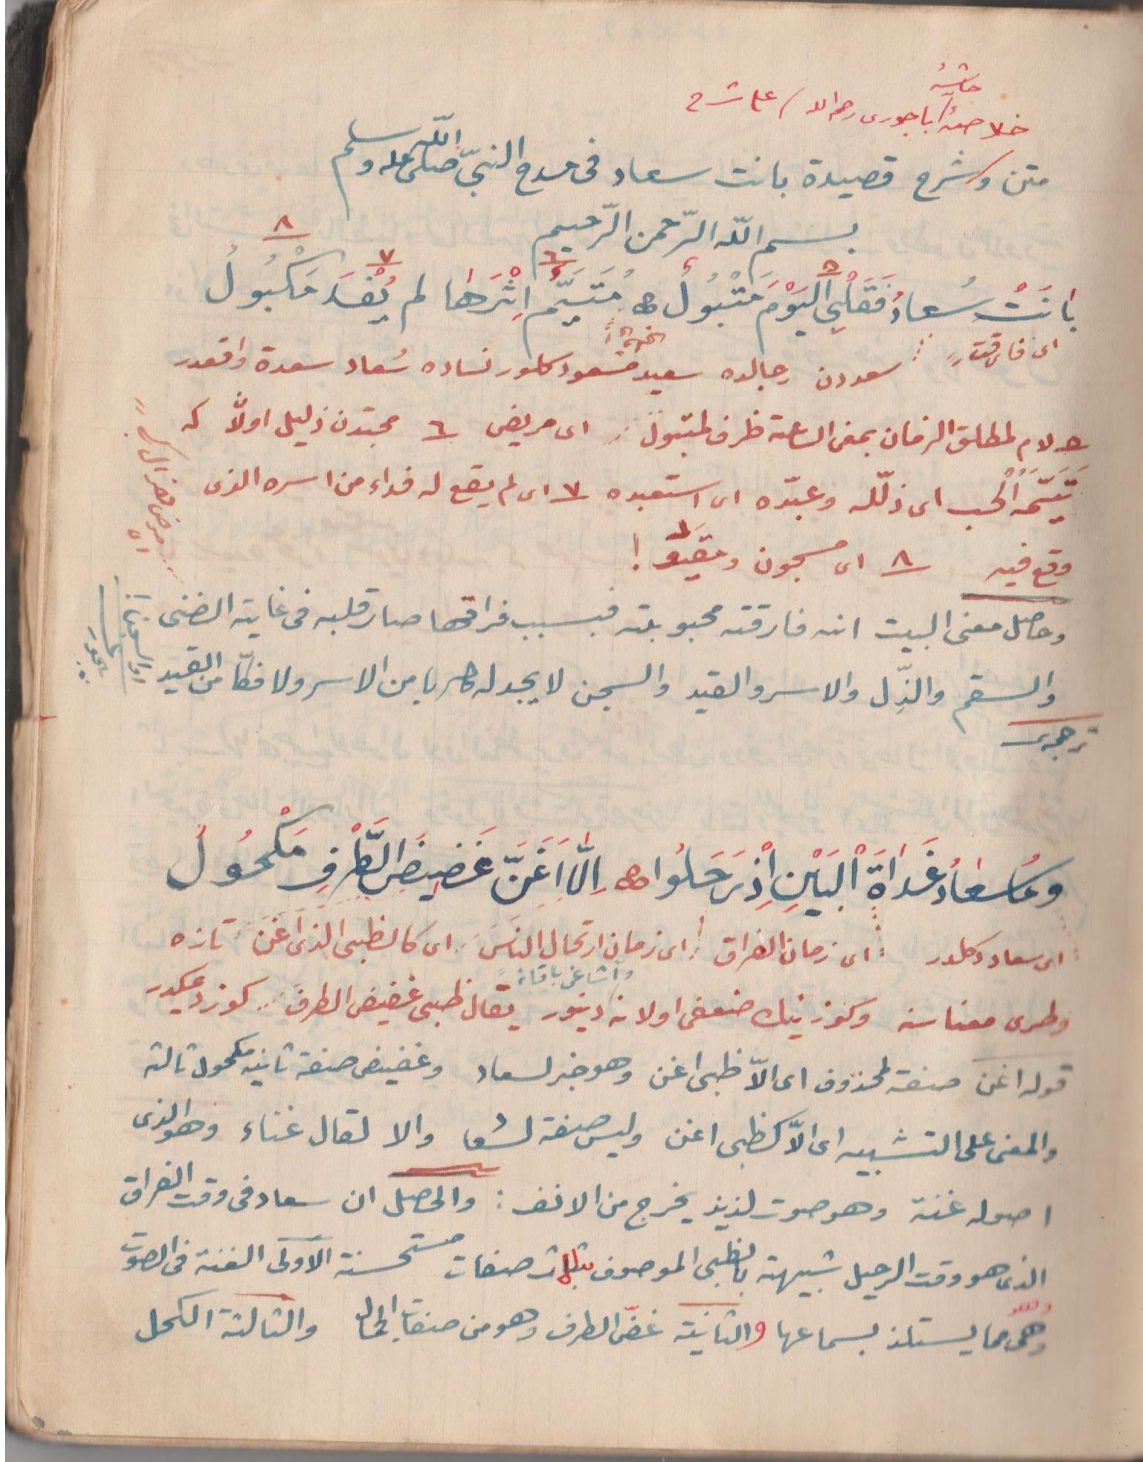 حاشيهٔ
خلاصهٔ باجورى رحمه الله على شرح
متن وشرح قصيدة بانت سعاد فى مدح النبىّ صلى اللّه عليه وسلم
بسم اللّه الرّحمن الرّحيم
٨ ٧ ٦ ٥
بَانَتْ سُعادُ فَقَلْبِى اليَوْمَ مَتْبُولُ ۞ مُتَيَّمٌ اِثْرَهَا لم يُفْدَ مَكْبُولُ
اى فارقت
سعددن رجالده سعيد مسعود كلور نساده سُعاد سعدة واقعدر
٥ لام لمطلق الزمان بمعنى الساعة ظرف لمتبول اى مريض ٦ محبتدن ذليل اولاً كه
تَيَّمَهُ الْحُب اى ذلّله وعبّده اى استعبده ٧ اى لم يقع له فداء من اسره الذى
وقع فيه ٨ اى مسجون ومقيّد !
وحاصل معنى البيت انه فارقته محبوبته فبسبب فراقها صار قلبه فى غاية الضنى
والسقم والذّل والاسر والقيد والسجن لا يجد له مهربا من الاسر ولا فكّا من القيد
ترجمه سى
وَمَا سُعَادُ غَدَاةَ الْبَيْنِ اِذْ رَحَلُوا ۞ اِلَّا اَغَنَّ غَضِيضَ الطَّرْفِ مَكْحُولُ
اى سعاد دكلدر اى زمان الفراق اى زمان ارتحال الناس اى كالظبى الذى اغن تازه
وطرى معناسنه وكوزينك ضعفى اولانه دينور يقال ظبى غضيض الطرف كوز
قوله اغن صفة لمحذوف اى الاّ ظبى اغن وهو خبر لسعاد وغضيض صفة ثانيه مكحول ثالثه
والمعنى على التشبيه اى الاّ كظبى اغن وليس صفة لسعاد والا لقال غناء وهو الذى
صوته غنة وهو صوت لذيذ يخرج من الانف : والحاصل ان سعاد فى وقت الفراق
الذى هو وقت الرحيل شبيهة بالظبى الموصوف بثلاث صفات مستحسنة الاولى الغنة فى الصوت
وهى مما يستلذ بسماعها والثانية غضّ الطرف وهو من صفات الجمال والثالثة الكحل